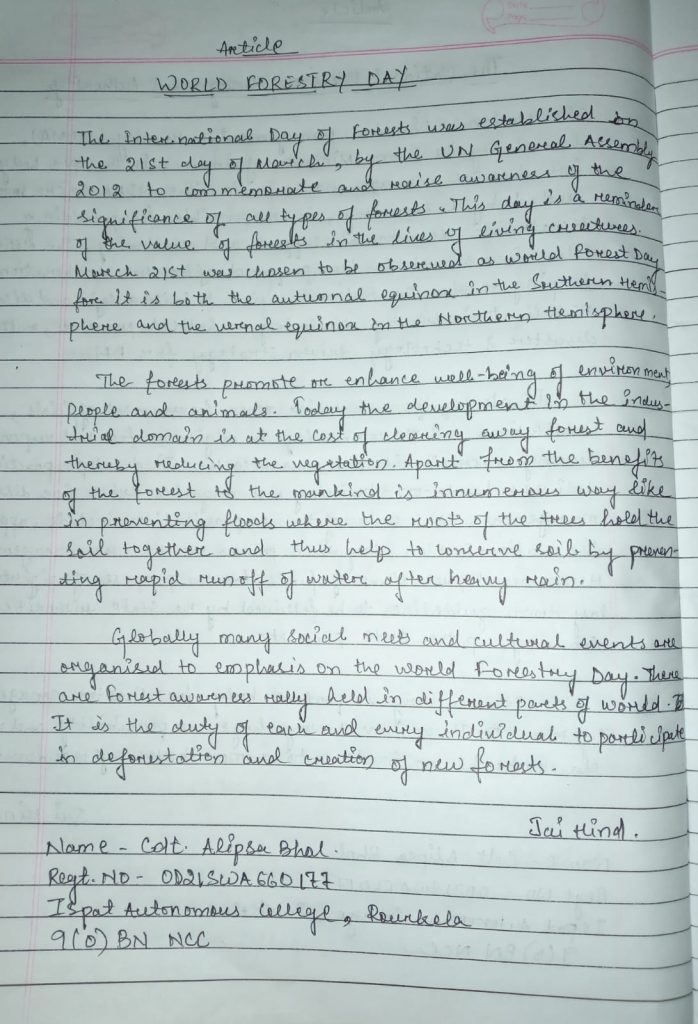 Article
WORLD FORESTRY DAY
The International Day of Forests was established on
the 21st day of March, by the UN General Assembly
2012 to commemorate and raise awarness of the
significance of all types of forests. This day is a reminder
of the value of forests in the lives of living creatures.
March 21st was chosen to be observed as world Forest Day
fore it is both the autunnal equinox in the Southern Hemis-
phere and the vernal equinox in the Northern Hemisphere.
The forests promote or enhance well-being of environment,
people and animals. Today the development in the indus-
trial domain is at the cost of clearing away forest and
thereby reducing the vegetation. Apart from the benefits
of the forest to the mankind is innumerous way like
in preventing floods where the roots of the trees hold the
soil together and thus help to conserve soil by preven-
ting rapid run off of water after heavy rain.
Globally many social meets and cultural events are
organised to emphasis on the world Forestry Day. There
are forest awarness rally held in different parts of world.
It is the duty of each and every individual to participate
in deforestation and creation of new forests.
Jai Hind.
Name - Cdt. Alipsa Bhol.
Regt. NO - OD21SWA660177
Ispat Autonomous College, Rourkela
9(O) BN NCC